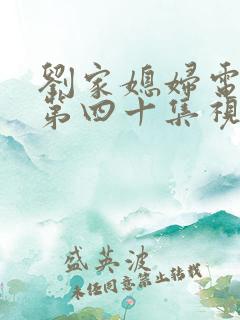 劉家媳婦電
第四十集視
盛英波
未経同意禁止转载